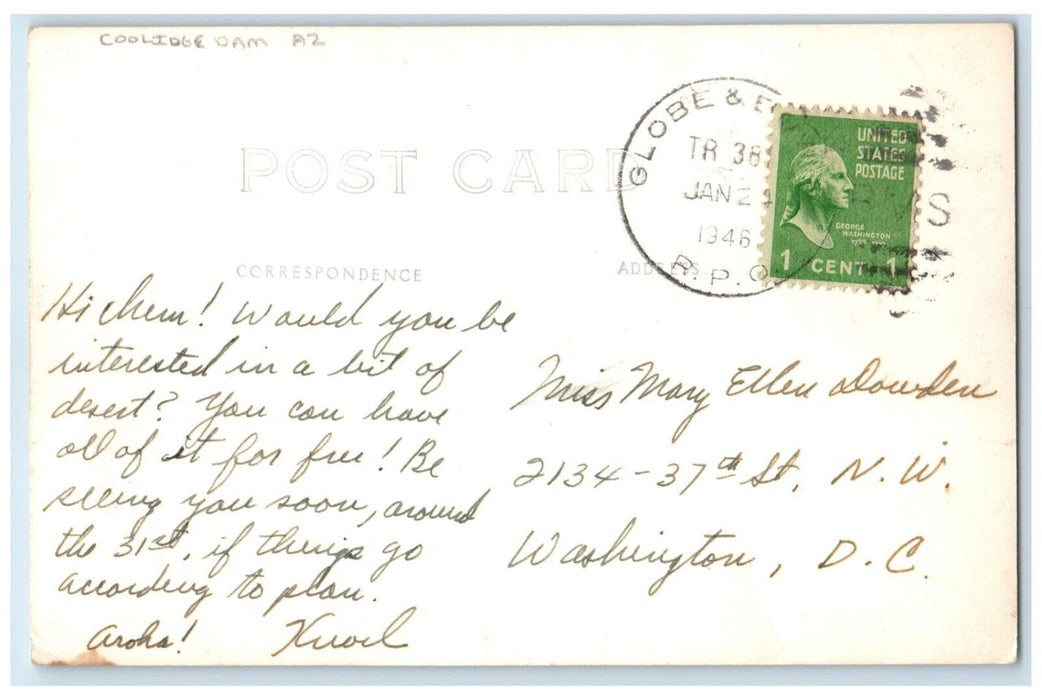 COOLIDGE DAM AZ
GLOBE & E
TR 38
JAN 24
1946
R.P.O.
UNITED
STATES
POSTAGE
GEORGE
WASHINGTON
1 CENT 1
POST CARD
CORRESPONDENCE
ADDRESS
Hi Mem! Would you be
interested in a bit of
desert? You can have
all of it for free! Be
seeing you soon, around
the 31st, if things go
according to plan.
Aroha!
Miss Mary Ellen Dowden
2134-37th St, N.W.
Washington, D.C.